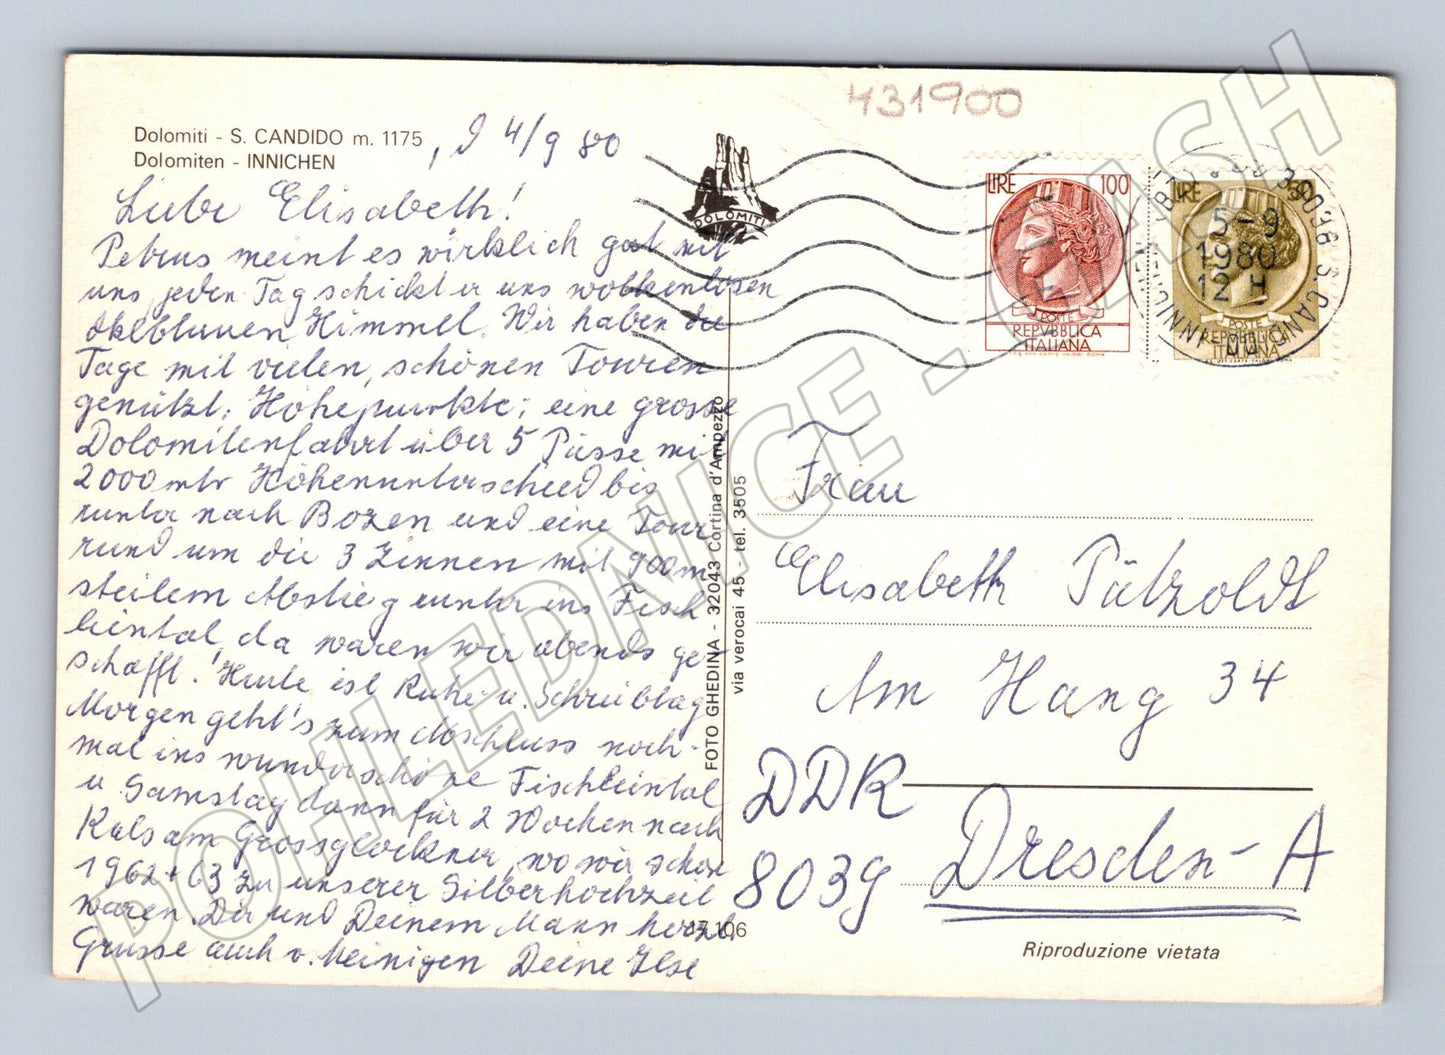 Dolomiti - S. CANDIDO m. 1175
Dolomiten - INNICHEN
, d 4/9 80
Liebe Elisabeth!
Petrus meint es wirklich gut mit
uns, jeden Tag schickt er uns wolkenlosen
Himmel. Wir haben die
Tage mit vielen, schönen Touren
genützt; Höhepunkte; eine grosse
Dolomitenfahrt über 5 Pässe mit
2000 mtr Höhenunterschied bis
runter nach Bozen und eine Tour
rund um die 3 Zinnen mit 900 m
steilem Abstieg runter ins Fisch
leintal, da waren wir abends ge-
schafft! Heute ist Ruhe- u. Schreibtag
Morgen geht's zum Abschluss noch-
mal ins wunderschöne Fischleintal
u. Samstag dann für 2 Wochen nach
Kals am Grossglockner, wo wir schon
1962 + 63 zu unserer Silberhochzeit
waren. Dir und Deinem Mann herzl.
Grüsse auch v. Meinigen Deine Ilse
DOLOMITI
FOTO GHEDINA - 32043 Cortina d'Ampezzo
via verocai 45 - tel. 3505
17.106
431900
LIRE 100
POSTE
REPVBBLICA
ITALIANA
LIRE
POSTE
REPVBBLICA
ITALIANA
39038 S. CANDIDO
INNICHEN
5-9
1980
12 H
Frau
Elisabeth Pätzoldt
Am Hang 34
DDR
8039 Dresden-A
Riproduzione vietata
POHLEDNICE - CASH